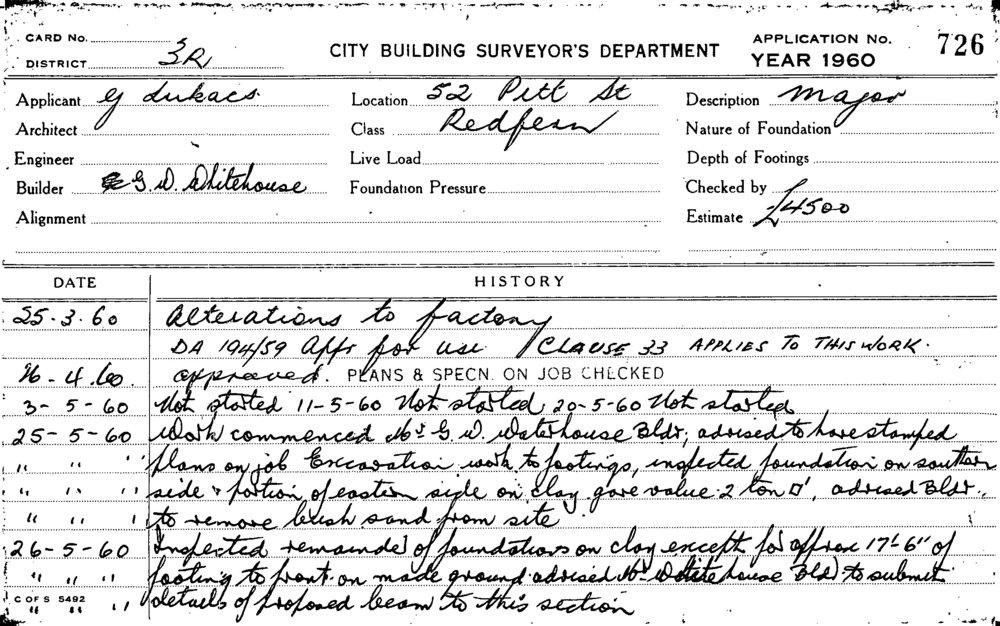 CARD No.
DISTRICT 3R
CITY BUILDING SURVEYOR'S DEPARTMENT
APPLICATION No. 726
YEAR 1960
Applicant G Lukacs
Location 52 Pitt St
Description Major
Architect
Class Redfern
Nature of Foundation
Engineer
Live Load
Depth of Footings
Builder G. W. Whitehouse
Foundation Pressure
Checked by
Alignment
Estimate £4500
DATE HISTORY
25-3-60 Alterations to factory
DA 194/59 Appr for use / CLAUSE 33 APPLIES TO THIS WORK.
-4-60. approved. PLANS & SPECN. ON JOB CHECKED
3-5-60 Not started 11-5-60 Not started, 20-5-60 Not started
25-5-60 Work commenced Mr G. W. Waterhouse Bldr, advised to have stamped
" " " plans on job Excavation work to footings, inspected foundation on southern
" " " side & portion of eastern side on clay gave value 2 ton □', advised Bldr.
" " " to remove bush sand from site.
26-5-60 Inspected remainder of foundations on clay except for approx 17'-6" of
" " " footing to front on made ground advised Mr Whitehouse Bldr to submit
C OF S 5492 " " " details of proposed beam to this section